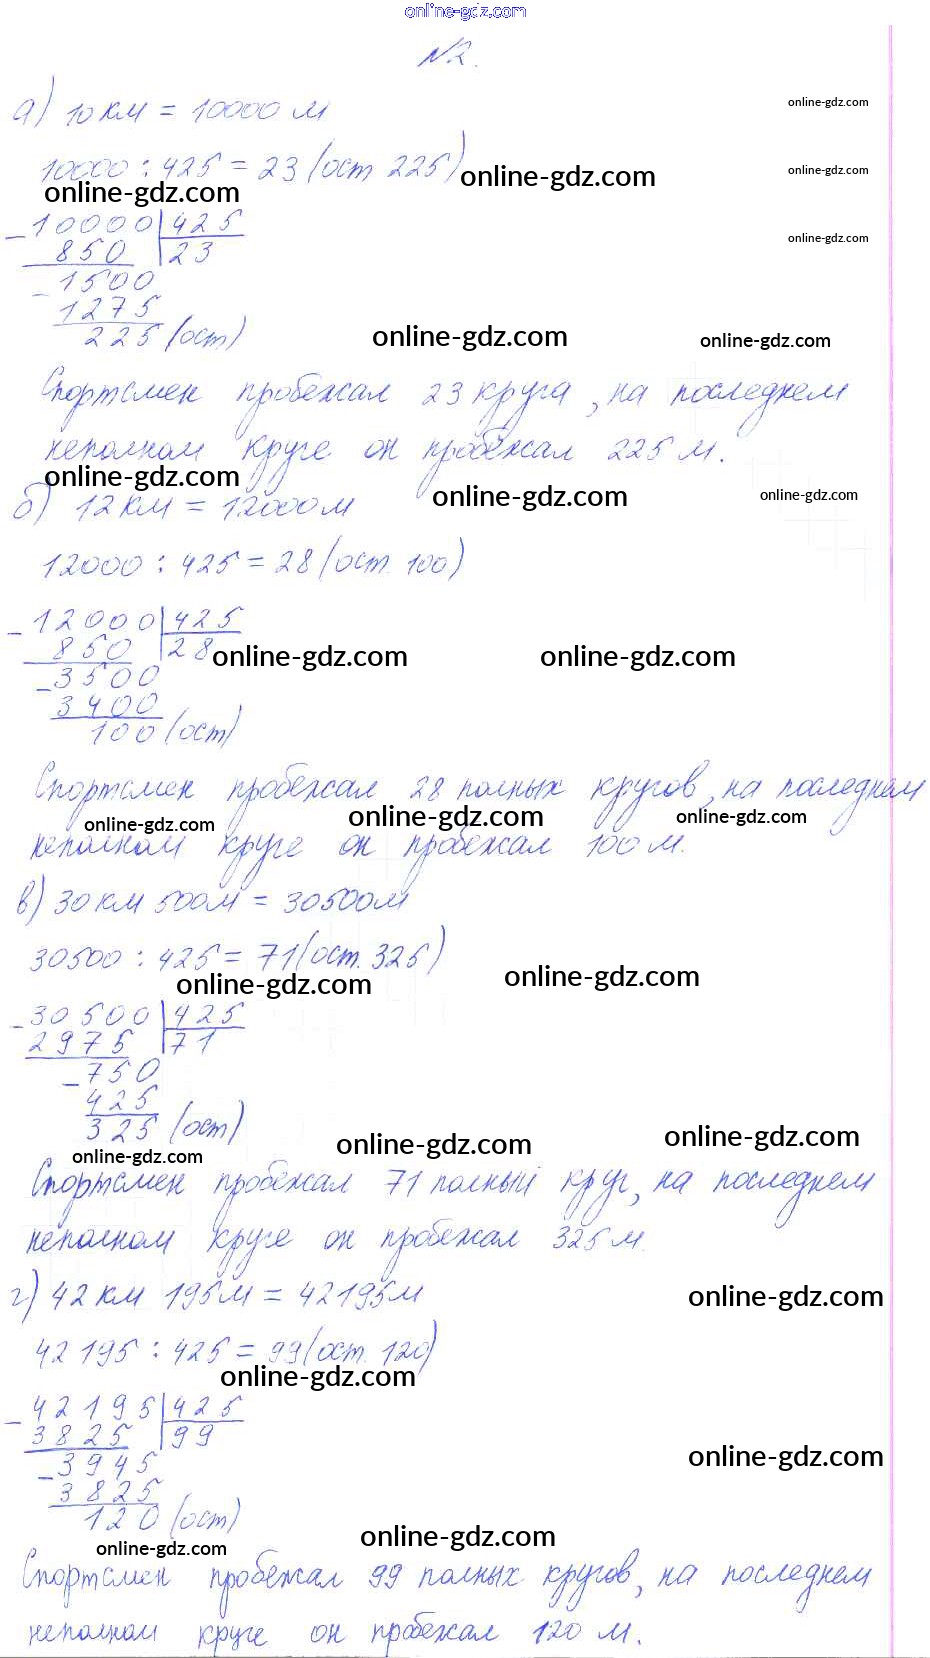 online-gdz.com
№2.
а) 10 км = 10000 м
online-gdz.com
10000 : 425 = 23 (ост 225)
online-gdz.com
online-gdz.com
online-gdz.com
- 10000 | 425
850 | 23
online-gdz.com
- 1500
1275
225 (ост)
online-gdz.com
online-gdz.com
Спортсмен пробежал 23 круга, на последнем
неполном круге он пробежал 225 м.
online-gdz.com
online-gdz.com
online-gdz.com
б) 12 км = 12000 м
12000 : 425 = 28 (ост. 100)
- 12000 | 425
850 | 28
online-gdz.com
online-gdz.com
- 3500
3400
100 (ост)
Спортсмен пробежал 28 полных кругов, на последнем
online-gdz.com
online-gdz.com
online-gdz.com
неполном круге он пробежал 100 м.
в) 30 км 500 м = 30500 м
30500 : 425 = 71 (ост. 325)
online-gdz.com
online-gdz.com
- 30500 | 425
2975 | 71
- 750
425
325 (ост)
online-gdz.com
online-gdz.com
online-gdz.com
Спортсмен пробежал 71 полный круг, на последнем
неполном круге он пробежал 325 м.
г) 42 км 195 м = 42195 м
online-gdz.com
42195 : 425 = 99 (ост. 120)
online-gdz.com
- 42195 | 425
3825 | 99
online-gdz.com
- 3945
3825
120 (ост)
online-gdz.com
online-gdz.com
Спортсмен пробежал 99 полных кругов, на последнем
неполном круге он пробежал 120 м.